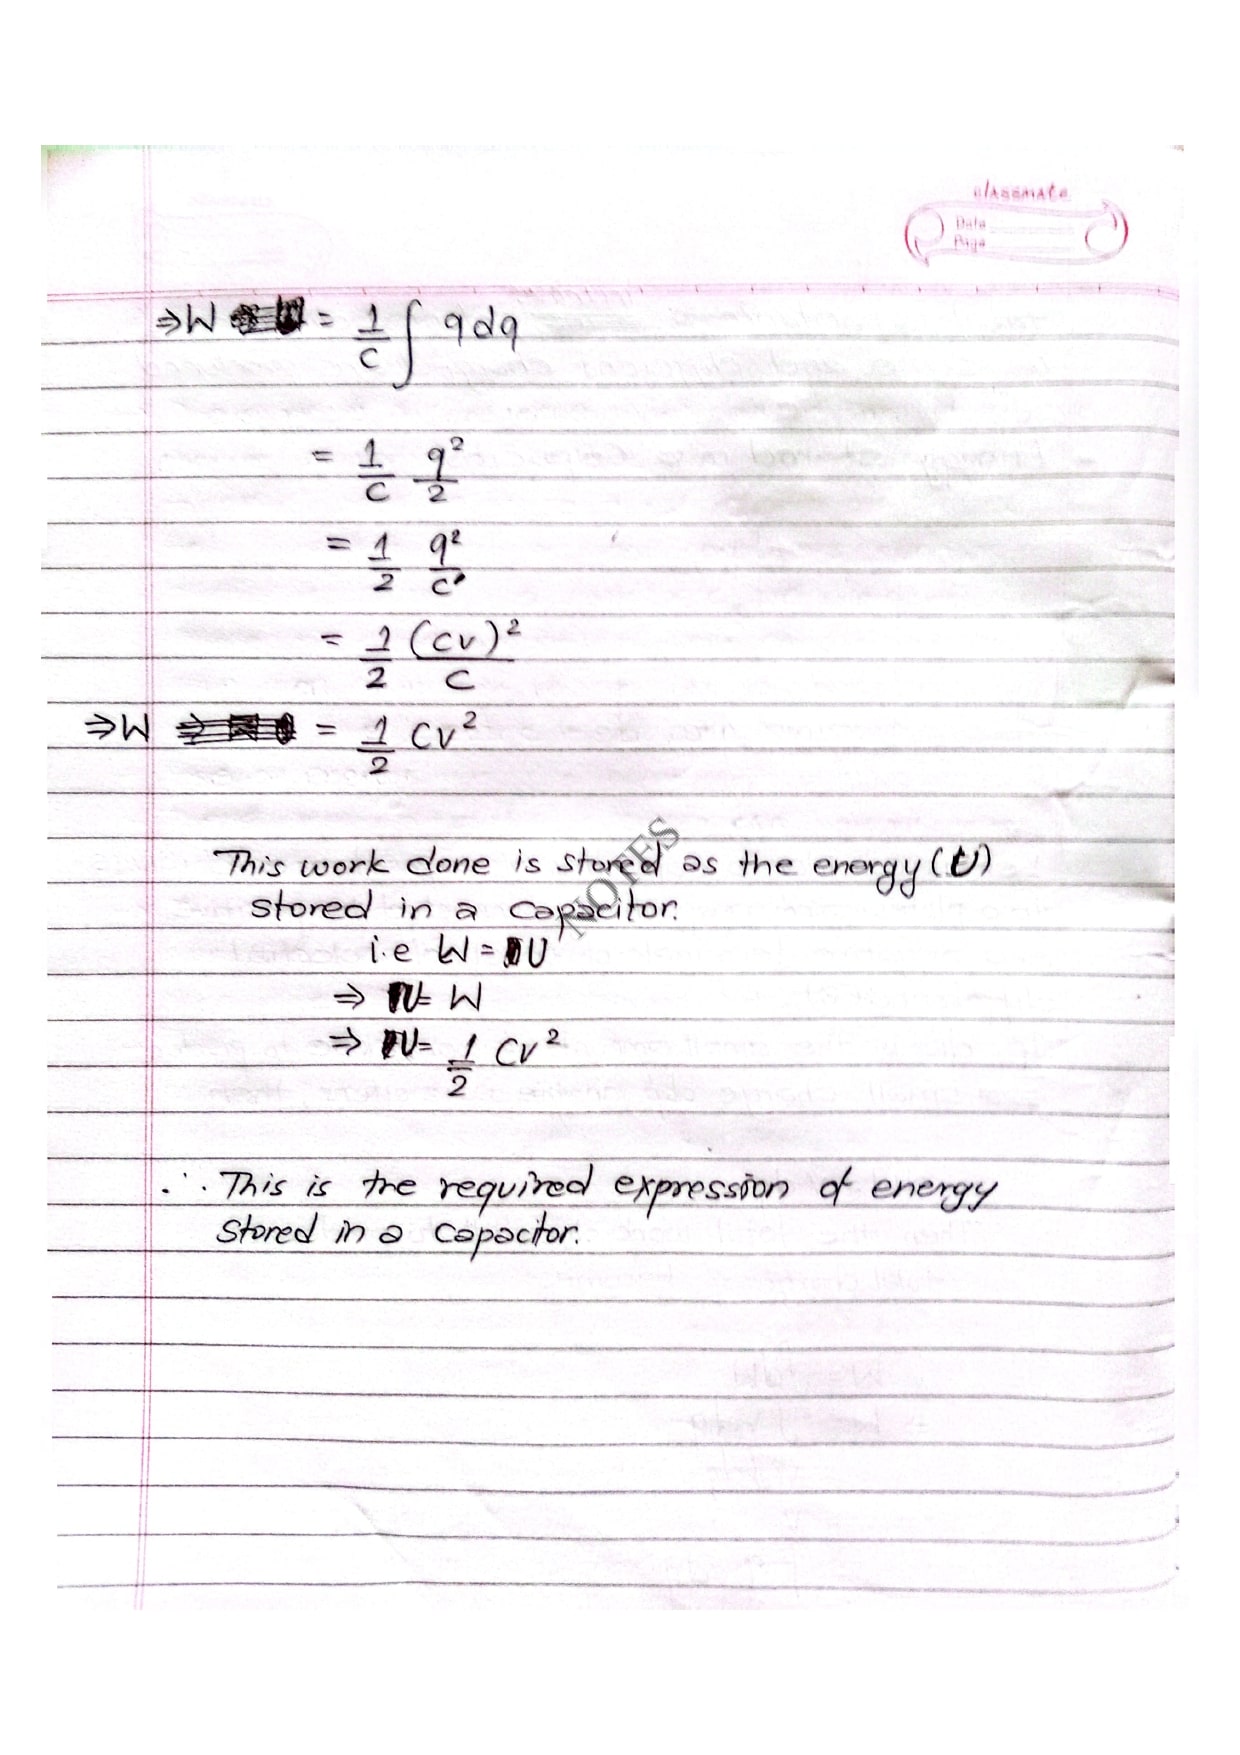 classmate
Date
Page
⇒ W = 1/C ∫ q dq
= 1/C q²/2
= 1/2 q²/C
= 1/2 (CV)²/C
⇒ W = 1/2 CV²
This work done is stored as the energy (U)
stored in a capacitor.
i.e W = U
⇒ U = W
⇒ U = 1/2 CV²
∴ This is the required expression of energy
stored in a capacitor.
NOTES